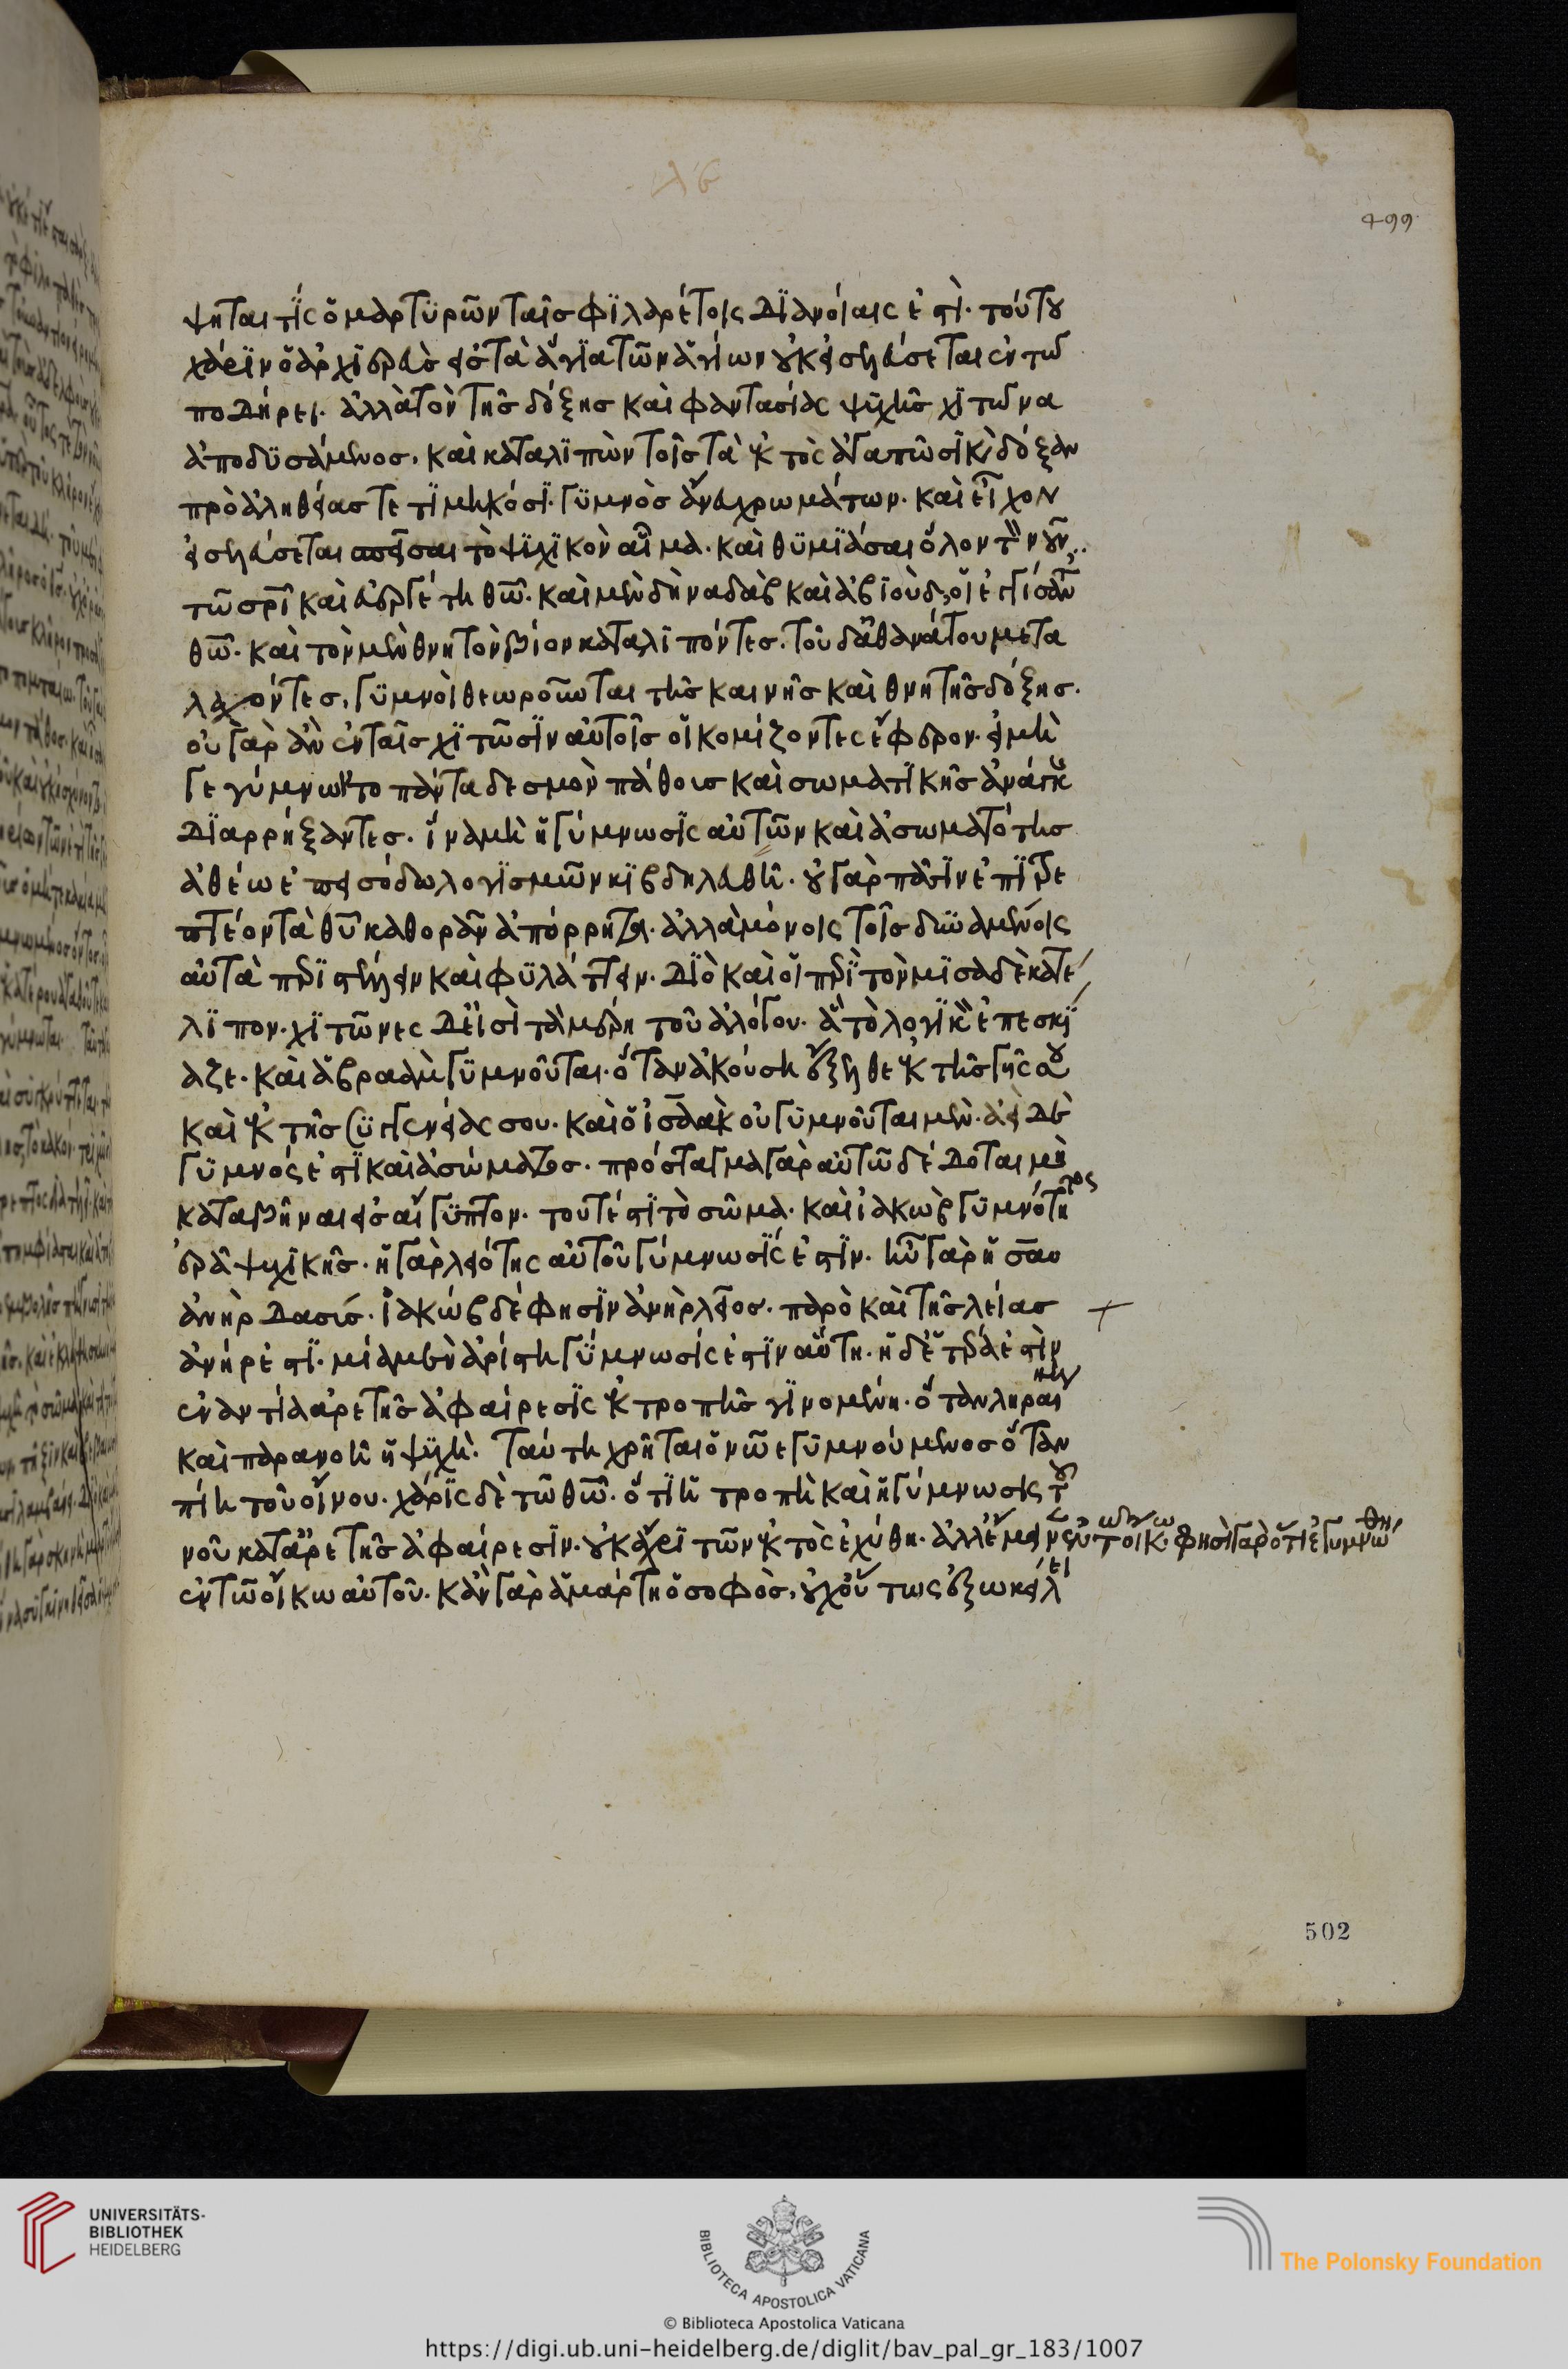 ψηται τίς ὁ μαρτυρῶν ταῖς φιλαρέτοις διανοίαις ἐστὶ. τούτου
χάριν ὁ ἀρχιερεὺς εἰς τὰ ἅγια τῶν ἁγίων οὐκ εἰσελεύσεται ἐν τῶ
ποδήρει. ἀλλὰ τὸν τῆς δόξης καὶ φαντασίας ψυχῆς χιτῶνα
ἀποδυσάμενος. καὶ καταλιπὼν τοῖς τὰ ἐκτὸς ἀγαπῶσι καὶ δόξαν
πρὸ ἀληθείας τετιμηκόσι. γυμνὸς ἄνευ χρωμάτων. καὶ εἶχον
εἰσελεύσεται σπεῖσαι τὸ ψυχικὸν αἷμα. καὶ θυμιάσαι ὅλον τὸν νοῦν
τῶ σρι καὶ εὐεργέτη θω. καὶ μὲν δὴ ναδὰβ καὶ ἀβιοὺδ, οἱ ἐγγίσαν
θω. καὶ τὸν μὲν θνητὸν βίον καταλιπόντες. τοῦ δ' ἀθανάτου μετα
λαχόντες, γυμνοὶ θεωροῦνται τῆς καινῆς καὶ θνητῆς δόξης.
οὐ γὰρ ἂν ἐν ταῖς χιτῶσιν αὐτοῖς οἱ κομίζοντες ἔφερον. εἰ μὴ
γεγύμνωντο πάντα δεσμὸν πάθους καὶ σωματικῆς ἀνάγκης
διαρρήξαντες. ἵνα μὴ ἡ γύμνωσις αὐτῶν καὶ ἀσωματότης
ἀθέω ἐπεισόδω λογισμῶν κιβδηλευθῆ. οὐ γὰρ πᾶσιν ἐπιτρε
πτέον τὰ θυ καθορᾶν ἀπόρρητα. ἀλλὰ μόνοις τοῖς δυναμένοις
αὐτὰ περιστέλλειν καὶ φυλάττειν. διὸ καὶ οἱ περὶ τὸν μισαδὲ κατέ
λιπον. χιτῶνες δέ εἰσὶ τὰ μέρη τοῦ ἀλόγου. ἃ τὸ λογικὸν ἐπεσκί
αζε. καὶ ἀβραὰμ γυμνοῦται. ὅταν ἀκούση ἔξελθε ἐκ τῆς γῆς σου
καὶ ἐκ τῆς συγγενείας σου. καὶ ὁ ἰσαὰκ οὐ γυμνοῦται μὲν. ἀεὶ δὲ
γυμνός ἐστι καὶ ἀσώματος. πρόσταγμα γὰρ αὐτῶ δέδοται μὴ
καταβῆναι εἰς αἴγυπτον. τουτέστι τὸ σῶμα. καὶ ἰακὼβ γυμνότητος
ἐρᾶ ψυχικῆς. ἡ γὰρ λειότης αὐτοῦ γύμνωσίς ἐστιν. ἦν γὰρ ἡσαυ
ἀνὴρ δασύς. ἰακώβ δέ φησιν ἀνὴρ λεῖος. παρὸ καὶ τῆς λείας
ἀνήρ ἐστι. μία μὲν ἀρίστη γύμνωσίς ἐστιν αὕτη. ἡ δ' ἑτέρα ἐστὶν
ἐναντία ἀρετῆς ἀφαίρεσις ἐκ τροπῆς γινομένη. ὅταν ληραίνη
καὶ παρανοῆ ἡ ψυχὴ. ταύτη χρῆται ὁ νῶε γυμνούμενος ὅταν
πίη τοῦ οἴνου. χάρις δὲ τῶ θω. ὅτι ἡ τροπὴ καὶ ἡ γύμνωσις τοῦ
νοῦ κατὰ ἀρετῆς ἀφαίρεσιν. οὐκ ἄχρι τῶν ἐκτὸς ἐχύθη. ἀλλ' ἔμεινεν ἐν τῶ οἴκω. φησὶ γὰρ ὅτι ἐγυμνώθη
ἐν τῶ οἴκω αὐτοῦ. κἂν γὰρ ἁμάρτη ὁ σοφὸς, οὐχ οὕτως ἐξωκείλει
499
502
UNIVERSITÄTS-
BIBLIOTHEK
HEIDELBERG
BIBLIOTECA APOSTOLICA VATICANA
The Polonsky Foundation
© Biblioteca Apostolica Vaticana
https://digi.ub.uni-heidelberg.de/diglit/bav_pal_gr_183/1007